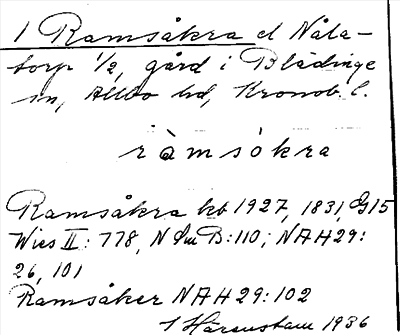 1 Ramsåkra el Nåla-
torp 1/2, gård i Blädinge
sn, Allbo hd, Kronob. l.
ràmsókra
Ramsåkra kb 1927, 1831, G15
Wies II: 778, N Sm B: 110; NAH 29:
26, 101
Ramsåker NAH 29: 102
I Härenstam 1936